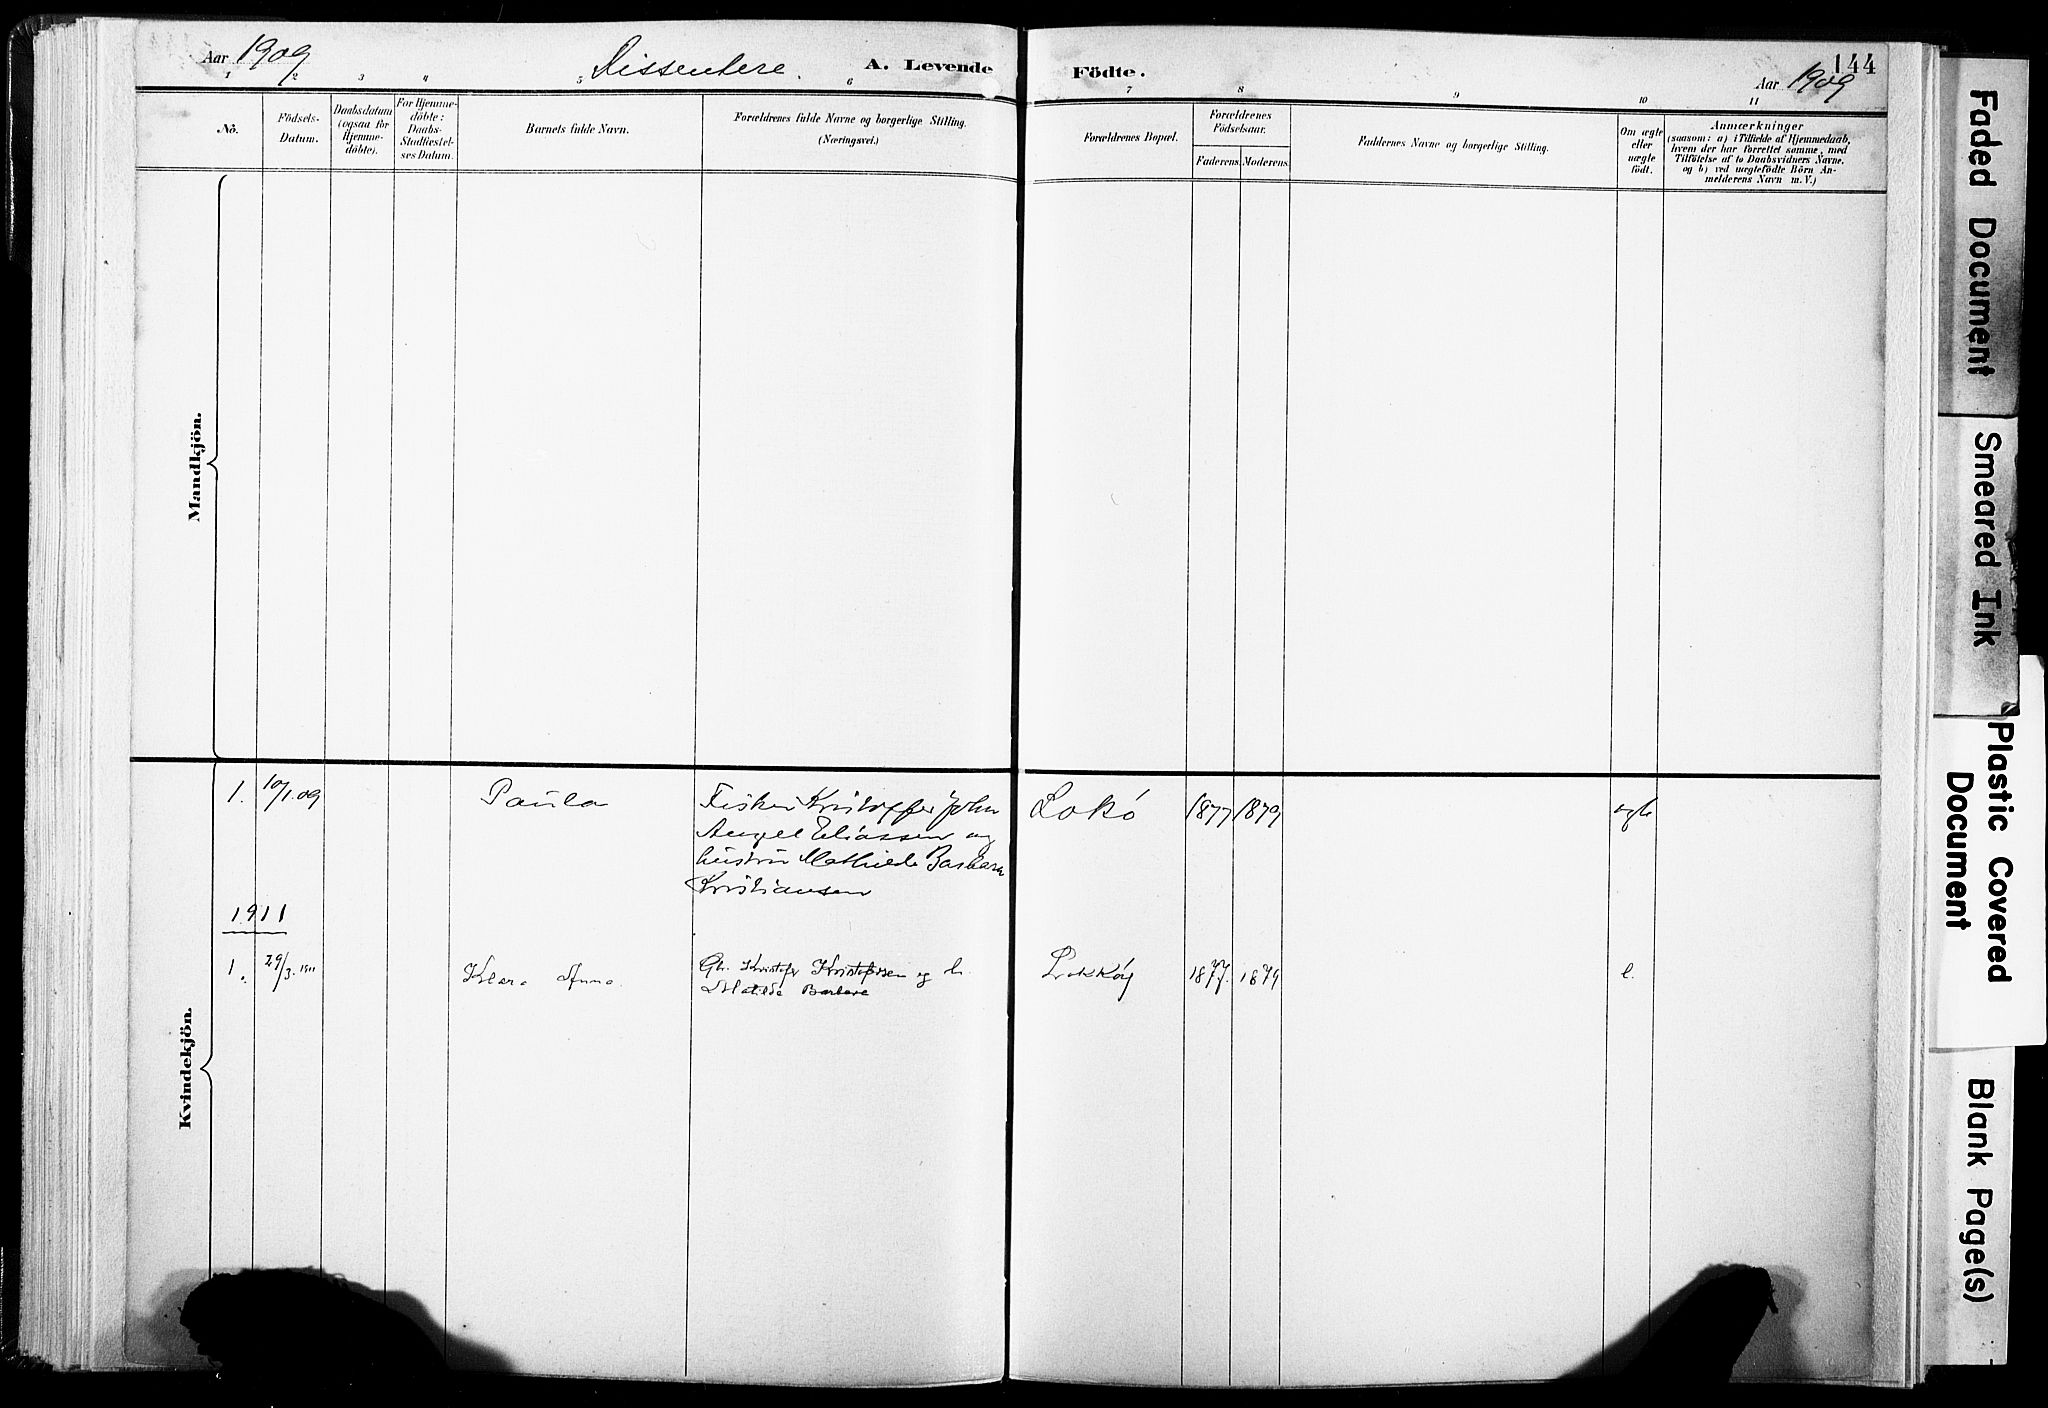 Aar 1909
Dissentere.
A. Levende Födte.
144
Aar 1909
1 2 3 4 5 6 7 8 9 10 11
No.
Födsels-
Datum.
Daabsdatum
(ogsaa for
Hjemme-
döbte).
For Hjemme-
döbte:
Daabs-
Stadfæstel-
ses Datum.
Barnets fulde Navn.
Forældrenes fulde Navne og borgerlige Stilling.
(Næringsvei.)
Forældrenes Bopæl.
Forældrenes
Födselsaar.
Faderens. Moderens.
Faddernes Navne og borgerlige Stilling.
Om ægte
eller
uægte
födt.
Anmærkninger
(saasom: a) i Tilfælde af Hjemmedaab,
hvem der har forrettet samme, med
Tilföielse af to Daabsvidners Navne.
og b) ved uægtefödte Börn An-
melderens Navn m. V.)
Mandkjön.
Kvindekjön.
1. 10/1.09 Paula Fisker Kristoffer John Lokö 1877 1879 ægte
Angel Eliassen og
hustru Mathilde Barbara
Kristiansen
1911
1. 29/3. 1911 Klara Anna. Gb. Kristofer Kristofersen og h. Lokköy 1877. 1879 e.
Matilde Barbara
Faded Document
Smeared Ink
Plastic Covered
Document
Blank Page(s)